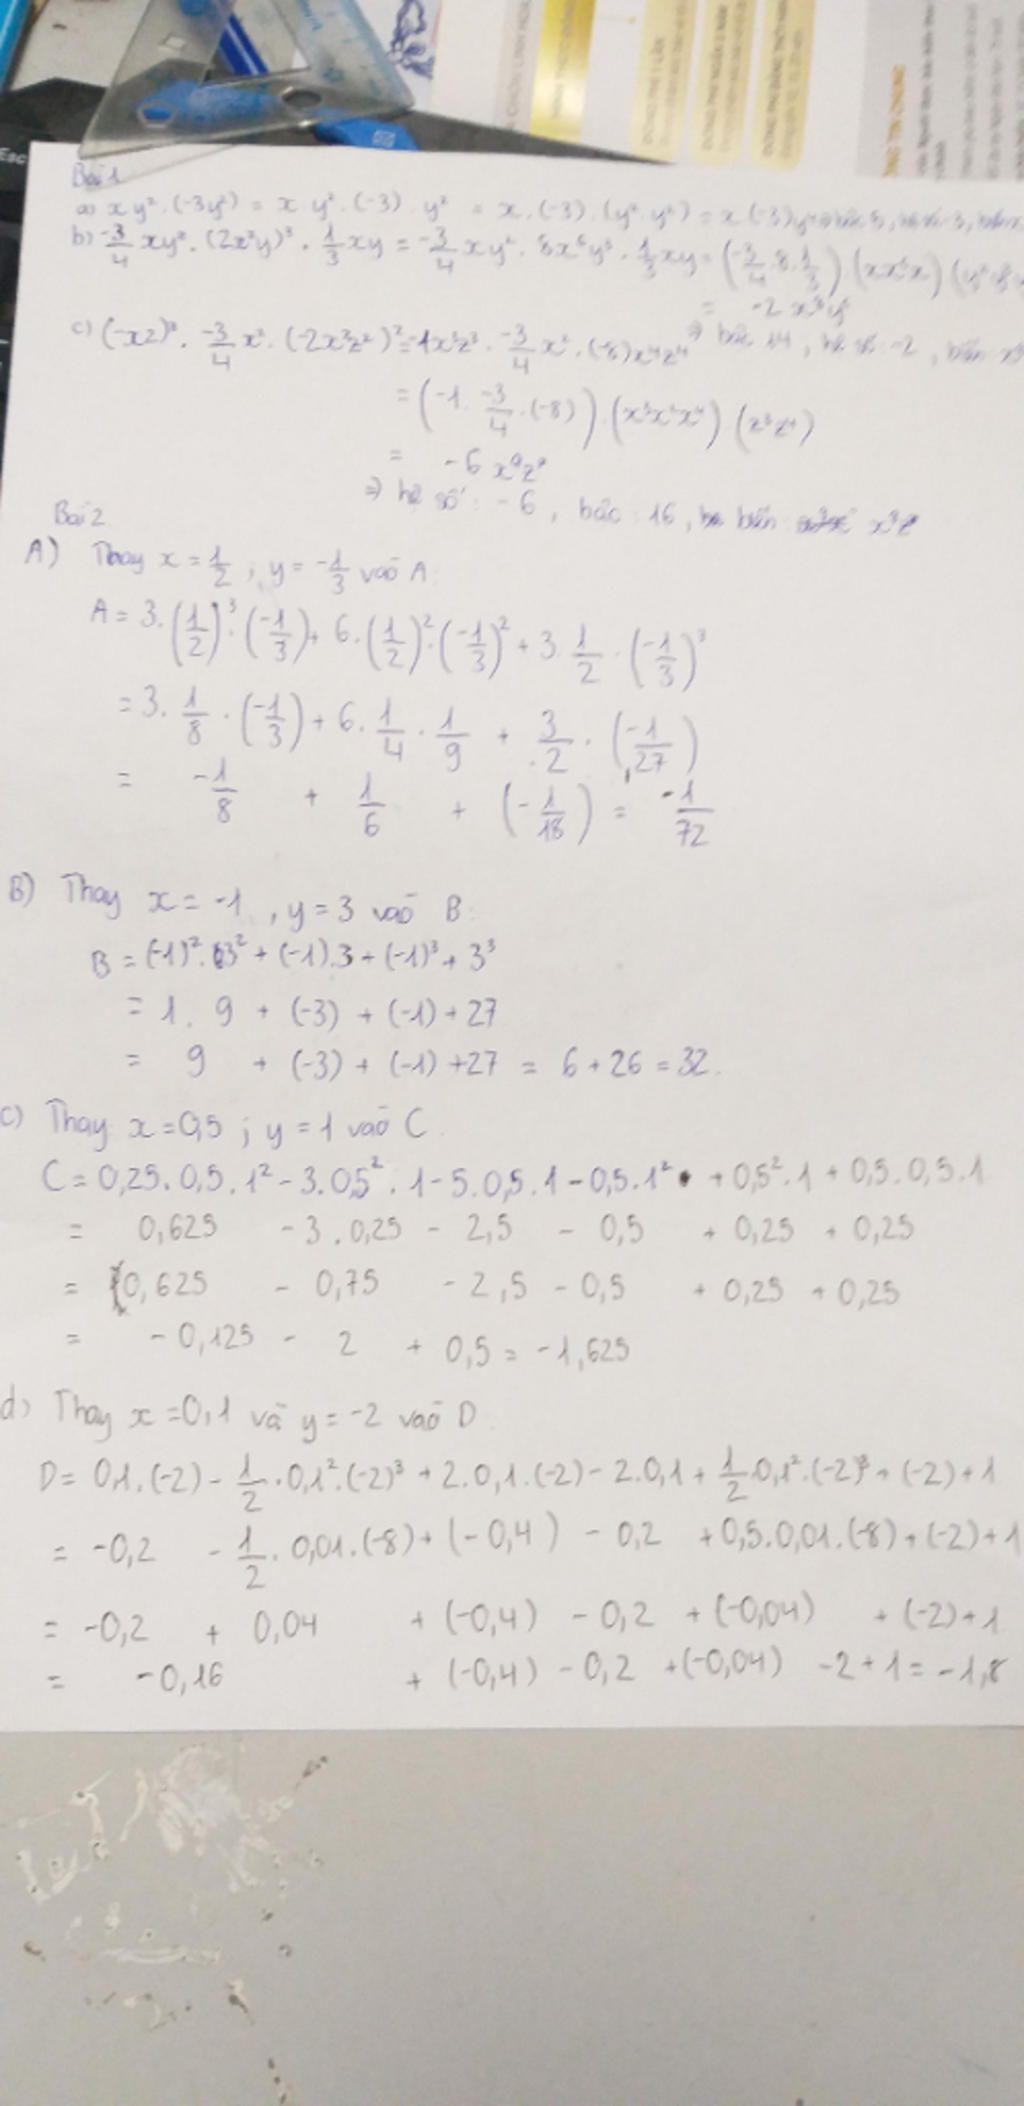 Esc
Bài 1
a) xy². (-3y²) = x y². (-3). y² = x. (-3). (y². y²) = x(-3)y⁴
b) -3/4 xy². (2x²y)³. 1/3 xy = -3/4 xy². 8x⁶y³. 1/3 xy = (-3/4. 8. 1/3). (xx⁶x)
= -2 x⁸y⁶
⇒ bậc 14, hệ số -2, biến
c) (-xz)³. -3/4 x². (-2x²z²)² = -1x³z³. -3/4 x². (-8)x⁴z⁴
= (-1. -3/4. (-8)). (x³x²x⁴). (z³z⁴)
= -6 x⁹z⁷
⇒ hệ số: -6, bậc: 16, biến
Bài 2
A) Thay x = 1/2 ; y = -1/3 vào A:
A = 3. (1/2)³. (-1/3) + 6. (1/2)². (-1/3)² + 3. 1/2. (-1/3)³
= 3. 1/8. (-1/3) + 6. 1/4. 1/9 + 3/2. (-1/27)
= -1/8 + 1/6 + (-1/18) = -1/72
B) Thay x = -1, y = 3 vào B:
B = (-1)². 3² + (-1).3 + (-1)³ + 3³
= 1. 9 + (-3) + (-1) + 27
= 9 + (-3) + (-1) + 27 = 6 + 26 = 32.
c) Thay x = 0,5 ; y = 1 vào C
C = 0,25. 0,5. 1² - 3. 0,5². 1 - 5. 0,5. 1 - 0,5. 1² + 0,5². 1 + 0,5. 0,5. 1
= 0,625 - 3. 0,25 - 2,5 - 0,5 + 0,25 + 0,25
= 0,625 - 0,75 - 2,5 - 0,5 + 0,25 + 0,25
= -0,125 - 2 + 0,5 = -1,625
d) Thay x = 0,1 và y = -2 vào D.
D = 0,1. (-2) - 1/2. 0,1². (-2)³ + 2. 0,1. (-2) - 2. 0,1 + 1/2. 0,1². (-2)³ + (-2) + 1
= -0,2 - 1/2. 0,01. (-8) + (-0,4) - 0,2 + 0,5. 0,01. (-8) + (-2) + 1
= -0,2 + 0,04 + (-0,4) - 0,2 + (-0,04) + (-2) + 1
= -0,16 + (-0,4) - 0,2 + (-0,04) - 2 + 1 = -1,8